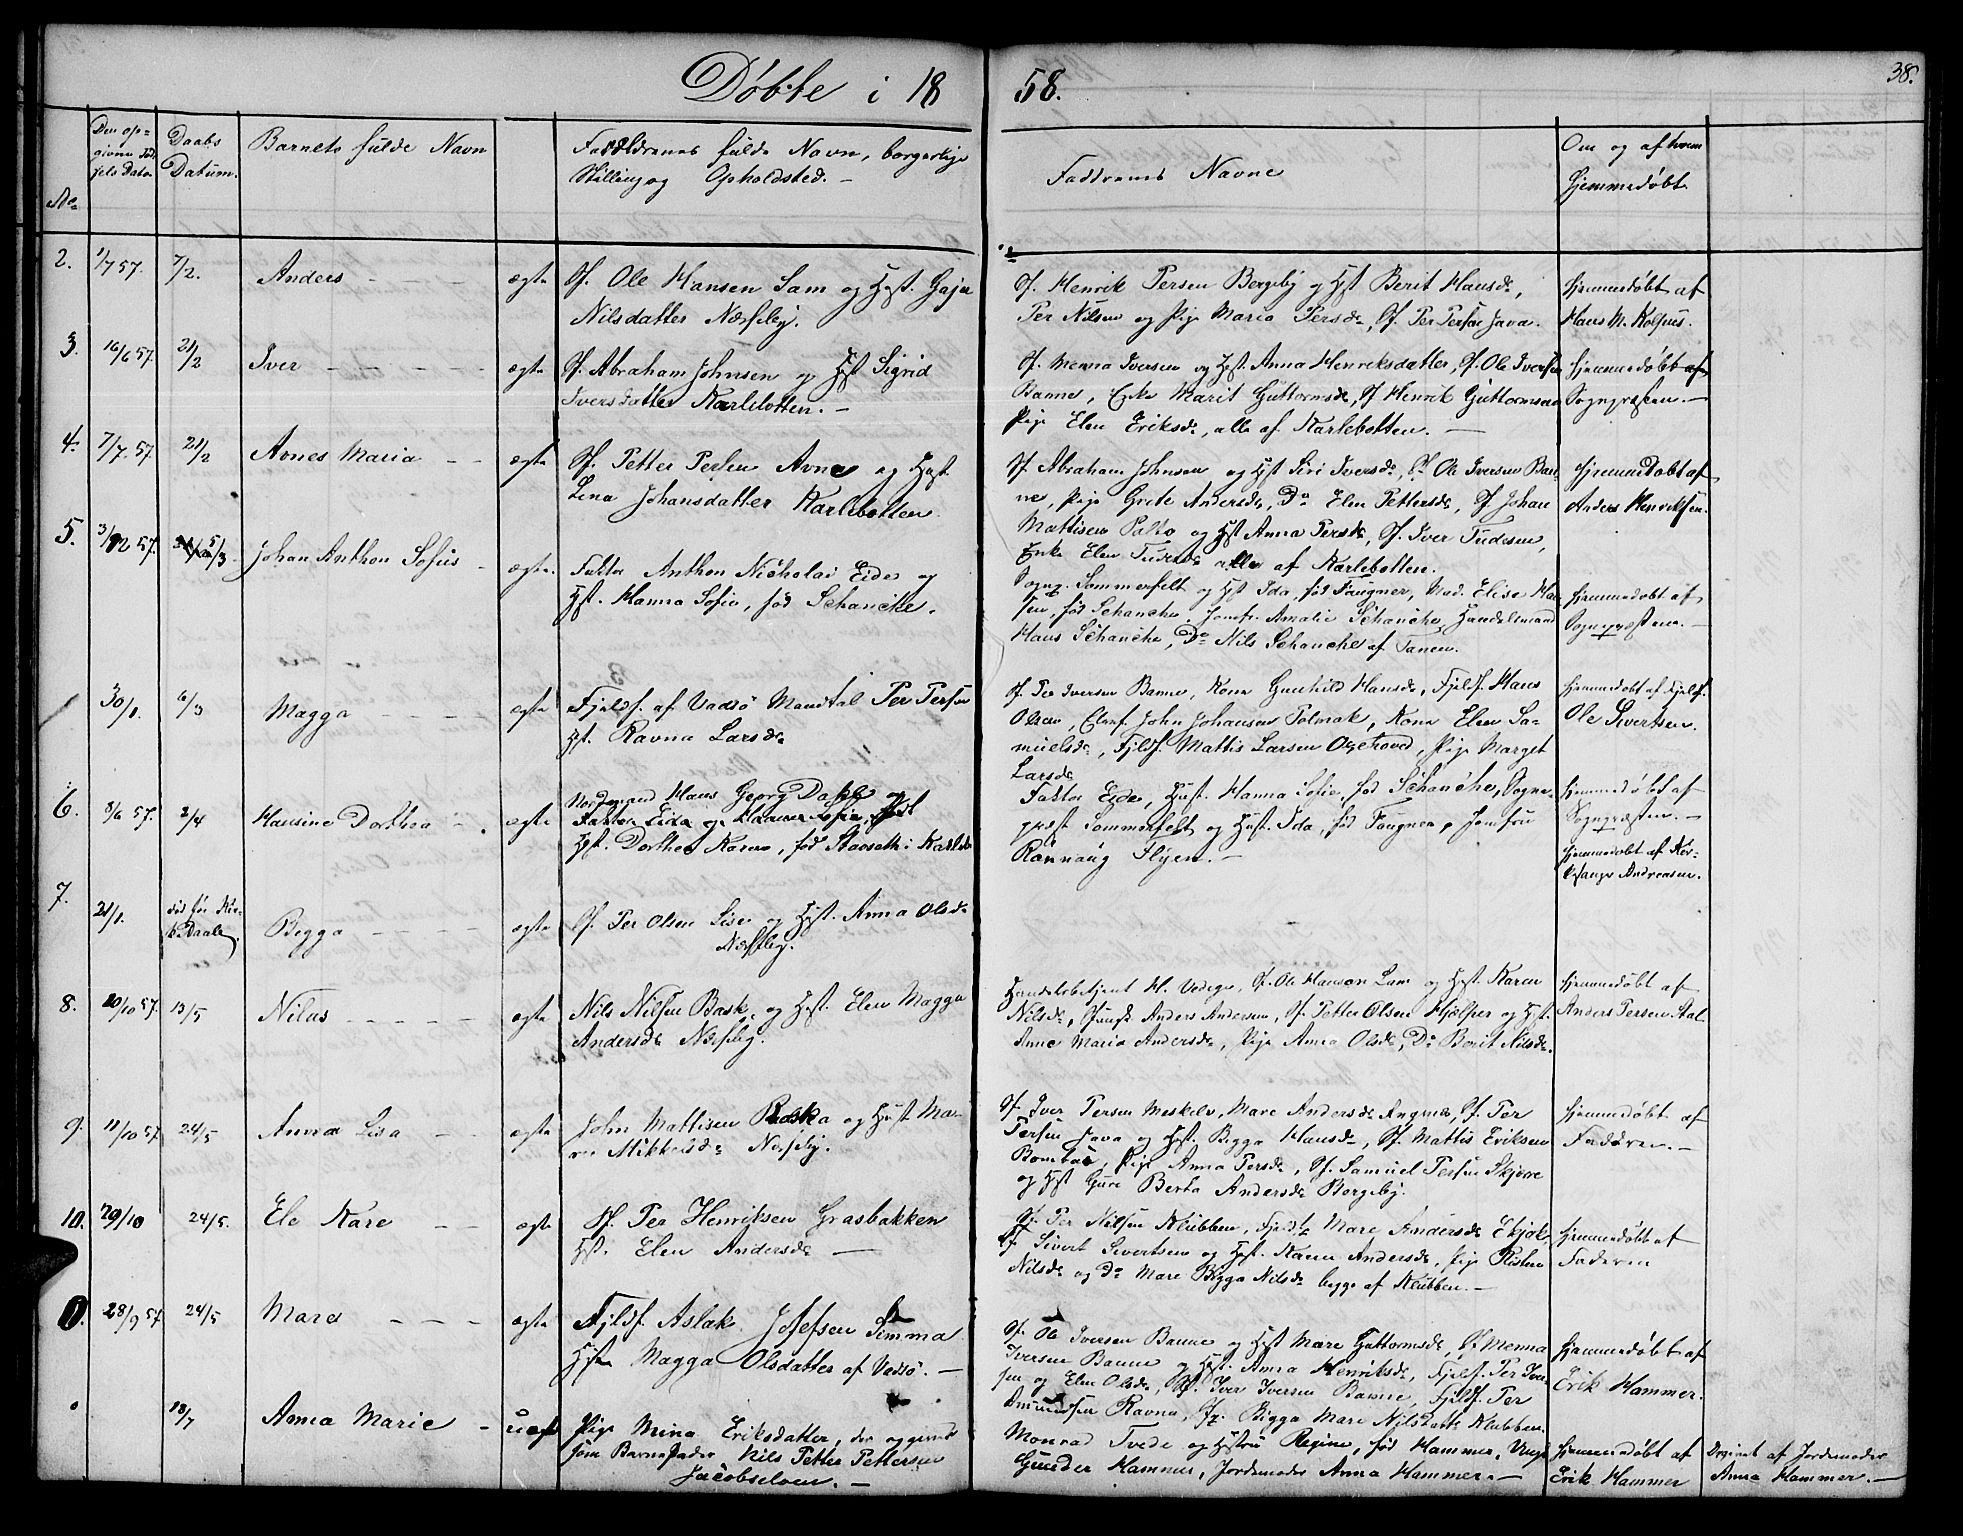 Døbte i 18 58.
38.
No
Den op-
givne Fød-
sels Dato
Daabs
Datum.
Barnets fulde Navn
Forældrenes fulde Navn, borgerlige
Stilling og Opholdsted. —
Faddrenes Navne
Om og af hvem
Hjemmedøbt
2. 1/7 57. 7/2. Anders — ægte Sf. Ole Hansen Lam og Hst.
Nilsdatter Næsseby.
Sf. Henrik Persen Bergeby og Hst Berit Hansdr,
Per Nilsen og Pige Maria Persdr, Sf. Per Persen Java.
Hjemmedøbt af
Hans M. Kolpus.
3. 16/6 57. 21/2 Iver — — — — ægte Sf. Abraham Johnsen og Hst Sigrid
Iversdatter Karlebotten. —
Sf. Menna Iversen og Hst. Anna Henriksdatter, Sf. Ole Iversen
Banne, Enke Marit Guttormsdr, Sf Henrik Guttormsen
Pige Elen Eriksdr, alle af Karlebotten. —
Hjemmedøbt af
Sognepræsten. —
4. 7/7 57. 21/2 Avnes Maria — — ægte Sf. Petter Persen Avne og Hst.
Lena Johansdatter Karlebotten.
Sf Abraham Johnsen og Hst Siri Iversdr, Sf Ole Iversen Ban-
ne, Pige Grete Andersdr, Do Elen Pettersdr, Sf Johan
Mattisen Palto og Hst Anna Persdr, Sf. Iver Tudesen,
Enke Elen Tudesdr alle af Karlebotten.
Hjemmedøbt af
Anders Henriksen.
5. 3/12 57. 5/3 Johan Anthon Sofus — ægte. Faktor Anthon Nicholai Eide og
Hst. Hanna Sofie, fød Schancke.
Sogнp. Sommerfelt og Hst Ida, fød Faugner, Mad. Elise Han-
sen, fød Schanche, Jomfr. Amalie Schanche, Handelsmand
Hans Schanche, Do Nils Schanche af Tanen.
Hjemmedøbt af
Sognepræsten. —
30/1. 6/3 Magga — — — — ægte Fjeldf. af Vadsø Mandtal Per Persen
Hst. Ravna Larsdr
Sf. Per Iversen Banne, Kone Gunhild Hansdr, Fjeldf. Hans
Olsen, Elvef. John Johansen Polmak, Kone Elen Sa-
muelsdr, Fjldf. Mattis Larsen, Pige Marget
Larsdr
Hjemmedøbt af Fjeldf.
Ole Sivertsen.
6. 8/6 57. 2/4 Hansine Dorthea — ægte Nordmand Hans Georg Dahl og
Faktor Eide og Hanna Sofie, fød
Hst. Dorthea Karen, fød Stavseth i Karleb.
Faktor Eide, Hust. Hanna Sofie, fød Schanche, Sogne-
præst Sommerfelt og Hust. Ida, fød Faugner, Jomfru
Rønnaug Flyen. —
Hjemmedøbt af
Sognpræsten. —
7. 21/1. død før Kir-
ke Daab. Bigga — — — — ægte Sf. Per Olsen Lise og Hst. Anna Olsdr
Næsseby.
Hjemmedøbt af Kir-
kesanger Andreasen.
8. 20/10 57. 13/5 Nilas — — — — ægte Nils Nilsen Bask og Hst. Elen Magga
Andersdr Næsseby.
Handelsbetjent H. Vedege, Sf. Ole Hansen Lam og Hst. Karen
Nilsdr, Ungk Anders Andersen, Sf. Petter Olsen Hjelper og Hst.
Anne Maria Andersdr, Pige Anna Olsdr, Do Berit Nilsdr.
Hjemmedøbt af
Anders Persen Aal.
9. 11/10 57. 24/5 Anna Lisa — — ægte John Mattisen Raska og Hust Ma-
ren Mikkelsdr Næsseby.
Sf. Iver Persen Meskelv, Mare Andersdr Angnes, Sf. Per
Persen Java og Hst. Bigga Hansdr, Sf. Mattis Eriksen
Bombas, Pige Anna Persdr, Sf. Samuel Persen Skjøre
og Hst Gure Berta Andersdr Bergeby.
Hjemmedøbt af
Faderen. —
10. 29/10 24/5. Ele Kare — — ægte Sf. Per Henriksen Grasbakken
Hst. Elen Andersdr —
Sf. Per Nilsen Klubben, Fjeld Mare Andersdr Ekjok,
Sf Sivert Sivertsen og Hst. Karen Andersdr, Pige Kisten
Nilsdr og Do Mare Bigga Nilsdr begge af Klubben. —
Hjemmedøbt af
Faderen
11. 28/9 57. 24/5 Mare — — — ægte Fjeldf. Aslak Josefsen Simma
Hstr Magga Olsdatter af Vadsø. —
Sf. Ole Iversen Banne og Hst Mare Guttormsdr, Sf Menna
Iversen Banne og Hst. Anna Henriksdr, Fjeldf. Per Iver-
sen og Elen Olsdr, Sf. Iver Iversen Banne, Fjeldf. Per
Ammundsen Ravna, Bigga Mare Nilsdatter Klubben.
Hjemmedøbt af
Erik Hammer.
18/7 Anna Marie — uægt Pige Mina Eriksdatter, der opgiver
som Barnefader Nils Petter Pettersen
Jacobselven. —
Monrad Tvede og Hstru Regine, fød Hammer, Ungk
Gunder Hammer, Jordemoder Anna Hammer. —
Hjemmedøbt af
Erik Hammer
Angivet af Jordemoder
Anna Hammer. —